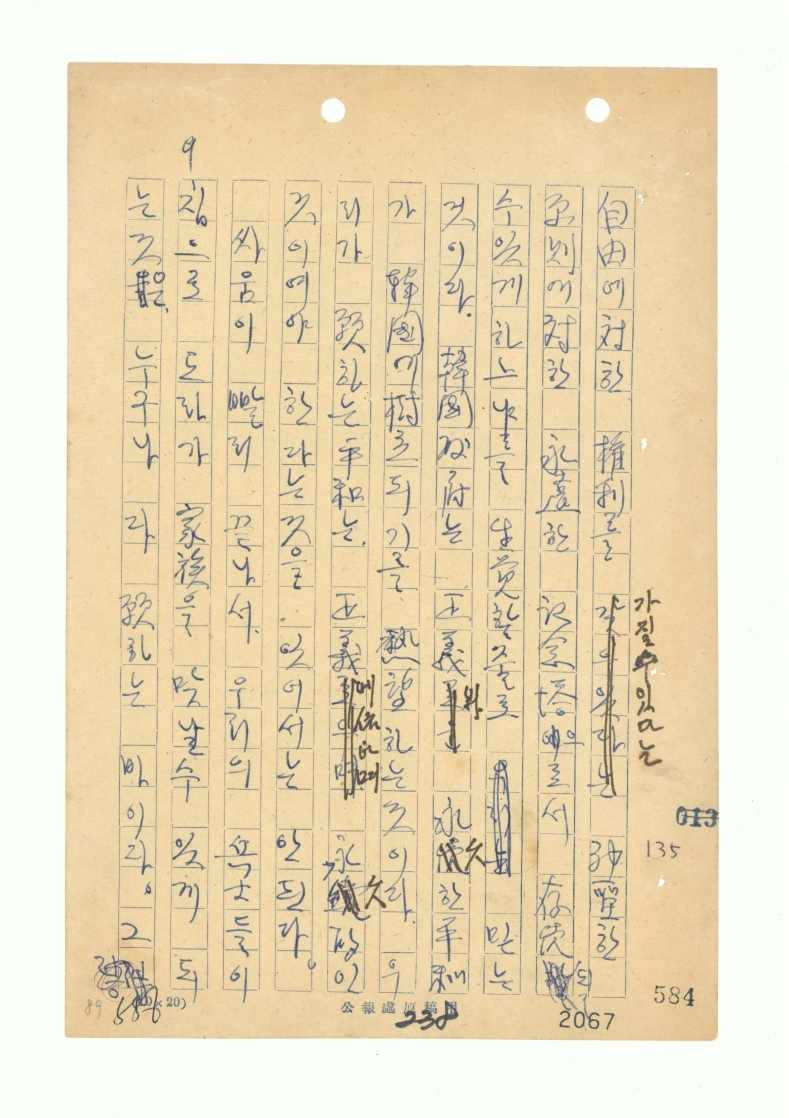 自由에 対한 權利를 가질수있다는 神聖한
原則에 対한 永遠한 記念塔으로서 存続될
수 있게 하는 生覚할줄로 믿는
것이다. 韓國政府는 正義와 永久한 平和
가 韓國에 樹立되기를 熱望하는 것이다. 우
리가 願하는 平和는, 正義에 依하며 永久的인
것이여야 한다는 것을 잊어서는 안된다.
싸움이 빨리 끝나서, 우리의 勇士들이
집으로 도라가 家族을 맞날수 있게 되
는 것은, 누구나 다 願하는 바이다. 그
9
013
135
584
2067
238
公報處原稿用
×20)
586
89